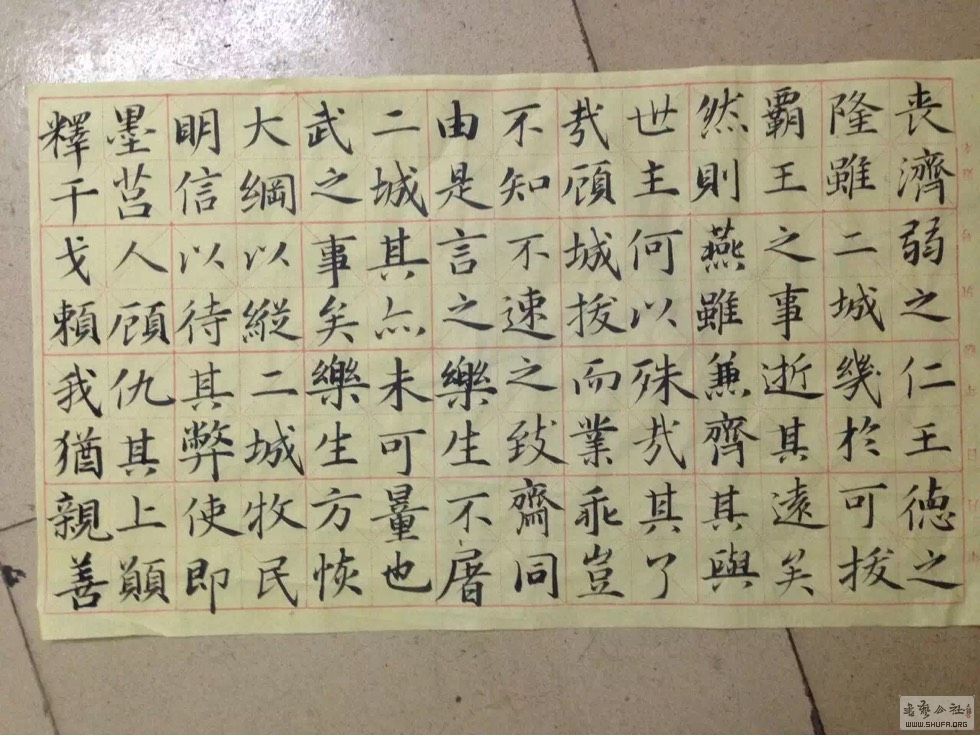 丧濟弱之仁王德之
隆雖二城幾於可拔
霸王之事逝其遠矣
然則燕雖兼齊其與
世主何以殊哉其了
哉顧城拔而業乖豈
不知不速之致齋同
由是言之樂生不屠
二城其亦未可量也
武之事矣樂生方恢
大綱以縱二城牧民
明信以待其弊使即
墨莒人顧仇其上願
釋干戈賴我猶親善
书艺公社
WWW.SHUFA.ORG